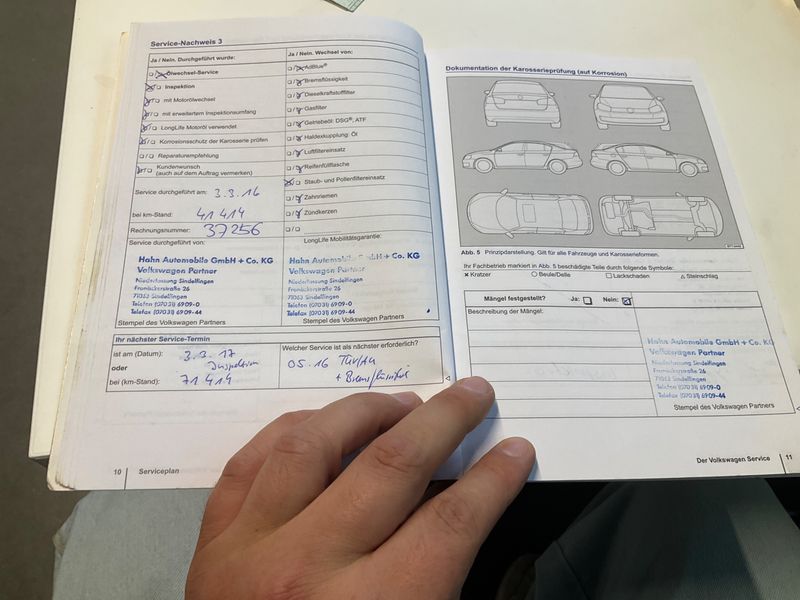 Service-Nachweis 3
Ja / Nein. Durchgeführt wurde:
Ölwechsel-Service
Inspektion
mit Motorölwechsel
mit erweitertem Inspektionsumfang
LongLife Motoröl verwendet
Korrosionsschutz der Karosserie prüfen
Reparaturempfehlung
Kundenwunsch
(auch auf dem Auftrag vermerken)
Service durchgeführt am: 3.3.16
bei km-Stand: 41 414
Rechnungsnummer: 37256
Service durchgeführt von:
Hahn Automobile GmbH + Co. KG
Volkswagen Partner
Niederlassung Sindelfingen
Fronäckerstraße 26
71063 Sindelfingen
Telefon (07031) 6909-0
Telefax (07031) 6909-44
Stempel des Volkswagen Partners
Ja / Nein. Wechsel von:
AdBlue®
Bremsflüssigkeit
Dieselkraftstofffilter
Gasfilter
Getriebeöl: DSG®, ATF
Haldexkupplung: Öl
Luftfiltereinsatz
Reifenfüllflasche
Staub- und Pollenfiltereinsatz
Zahnriemen
Zündkerzen
LongLife Mobilitätsgarantie:
Hahn Automobile GmbH + Co. KG
Volkswagen Partner
Niederlassung Sindelfingen
Fronäckerstraße 26
71063 Sindelfingen
Telefon (07031) 6909-0
Telefax (07031) 6909-44
Stempel des Volkswagen Partners
Ihr nächster Service-Termin
ist am (Datum): 3.3.17
oder Inspektion
bei (km-Stand): 71 414
Welcher Service ist als nächster erforderlich?
05.16 TÜV/AU
+ Bremsflüssigkeit
10 Serviceplan
Dokumentation der Karosserieprüfung (auf Korrosion)
Abb. 5 Prinzipdarstellung. Gilt für alle Fahrzeuge und Karosserieformen.
Ihr Fachbetrieb markiert in Abb. 5 beschädigte Teile durch folgende Symbole:
× Kratzer ○ Beule/Delle □ Lackschaden △ Steinschlag
Mängel festgestellt? Ja: Nein:
Beschreibung der Mängel:
Hahn Automobile GmbH + Co. KG
Volkswagen Partner
Niederlassung Sindelfingen
Fronäckerstraße 26
71063 Sindelfingen
Telefon (07031) 6909-0
Telefax (07031) 6909-44
Stempel des Volkswagen Partners
Der Volkswagen Service 11